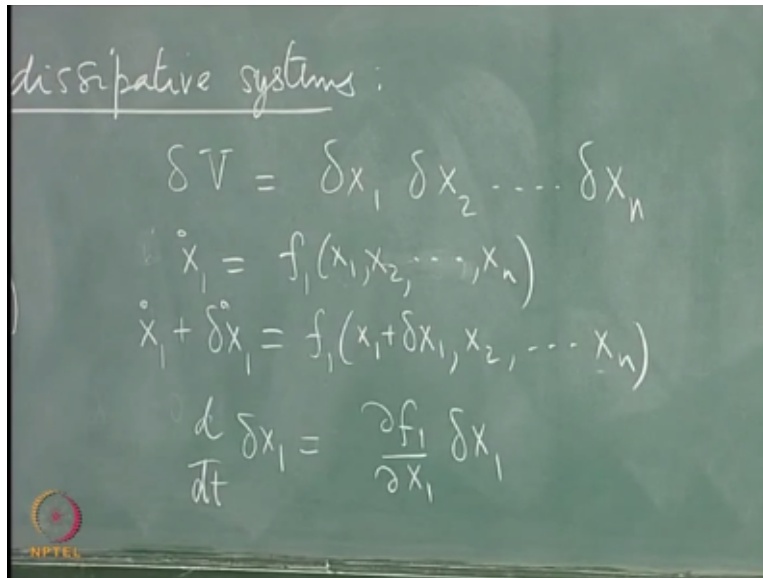 dissipative systems :
δV = δx₁ δx₂ ---- δxₙ
ẋ₁ = f₁(x₁, x₂, ---, xₙ)
ẋ₁ + δẋ₁ = f₁(x₁+δx₁, x₂, --- xₙ)
d/dt δx₁ = ∂f₁/∂x₁ δx₁
NPTEL